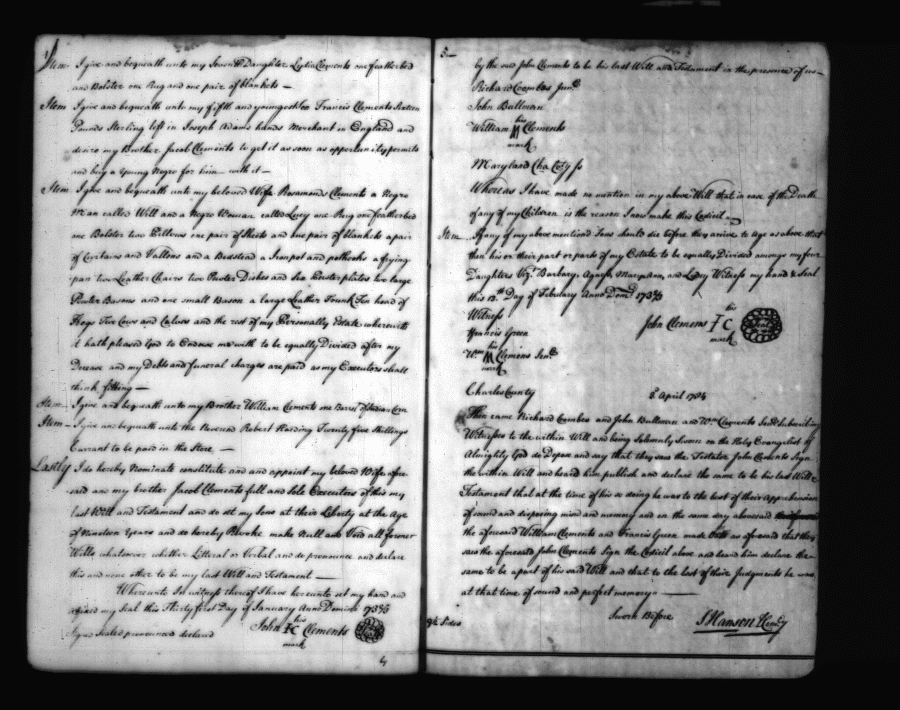 Item I give and bequeath unto my Seventh Daughter Clements one featherbed
and Bolster one Rug and one pair of blankets —
Item I give and bequeath unto my fifth and youngest Son Francis Clements Sixteen
Pounds Sterling left in Joseph Adams hands Merchant in England and
desire my Brother Jacob Clements to get it as soon as opportunity permits
and buy a young Negro for him with it —
Item I give and bequeath unto my beloved Wife Rosamond Clements a Negro
Man called Will and a Negro Woman called Lucy one Rug one featherbed
one Bolster two Pillows one pair of Sheets and one pair of blankets a pair
of Curtains and Vallens and a Bedstead a Ironpot and pothooks a frying
pan two Leather Chairs two Pewter Dishes and Six Pewter plates two large
Pewter Basons and one small Bason a large Leather Trunk Ten head of
Hogs Two Cows and Calves and the rest of my Personally Estate wherewith
it hath pleased God to Endow me with to be equally Divided after my
Decease and my Debts and funeral charges are paid as my Executors shall
think fitting —
Item — I give and bequeath unto my Brother William Clements one Barrel of Indian Corn
Item — I give and bequeath unto the Reverend Robert Harding Twenty five Shillings
Currant to be paid in the Store —
Lastly I do hereby Nominate constitute and and appoint my beloved Wife afore
said and my brother Jacob Clements full and Sole Executors of this my
last Will and Testament and do set my Sons at their Liberty at the Age
of Nineteen Years and do hereby Revoke make Null and Void all former
Wills whatsoever whether Litteral or Verbal and do pronounce and declare
this and none other to be my last Will and Testament —
Whereunto In witness thereof I have hereunto set my hand and
affixed my Seal this Thirty first Day of January Anno Domini 1733/4
Signd sealed pronounced declared
his
John Clements
mark
4
3 —
by the said John Clements to be his last Will and Testament in the presence of us —
Richard Coombes Junr
John Bullman
his
William M Clements
mark
Maryland Cha Coty ss
Whereas I have made no mention in my above Will that in case of the Death
of any of my Children is the reason I now make this Codicil —
Item If any of my above mentiond Sons should die before they arrive to Age as above that
then his or their part or parts of my Estate to be equally Divided amongst my four
Daughters Vizt Barbary Agness Mary Ann, and Witness my hand & Seal
this 13th Day of February Anno Domi 1733/4
Witness
Francis Green
his
John Clemens I C Seal
mark
his
Wm M Clemens Senr
mark
Charles County
8 April 1734
Then came Richard Coombes and John Bullman and Wm Clements Subscribing
Witnesses to the within Will and being Solemnly Sworn on the Holy Evangelist of
Almighty God do Depose and say that they saw the Testator John Clements Sign
the within Will and heard him publish and declare the same to be his last Will &
Testament that at the time of his so doing he was to the best of their Apprehensions
of sound and disposing mind and memory and on the same day abovesaid
the aforesaid William Clements and Francis Green made Oath as aforesaid that they
saw the aforesaid John Clements Sign the Codicil above and heard him declare the
same to be apart of his said Will and that to the best of their Judgments he was
at that time of sound and perfect memory —
Sworn Before
S Hanson
Sides